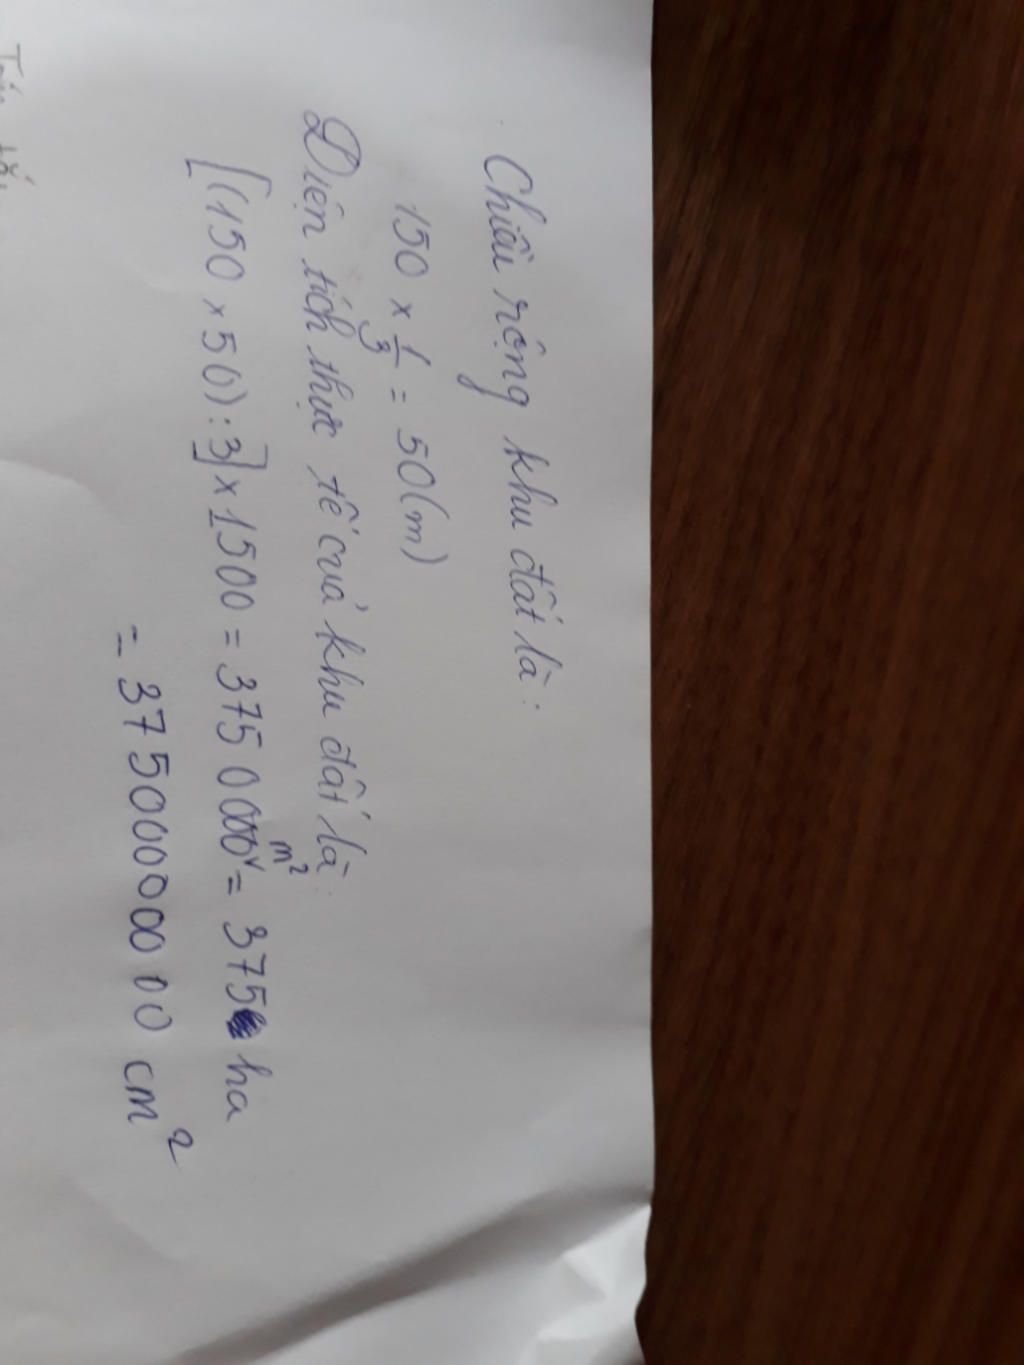 Chiều rộng khu đất là:
150 × 1/3 = 50(m)
Diện tích thực tế của khu đất là:
[(150 × 50) : 3] × 1500 = 375 0000 m² = 375 ha
= 37500000000 cm²